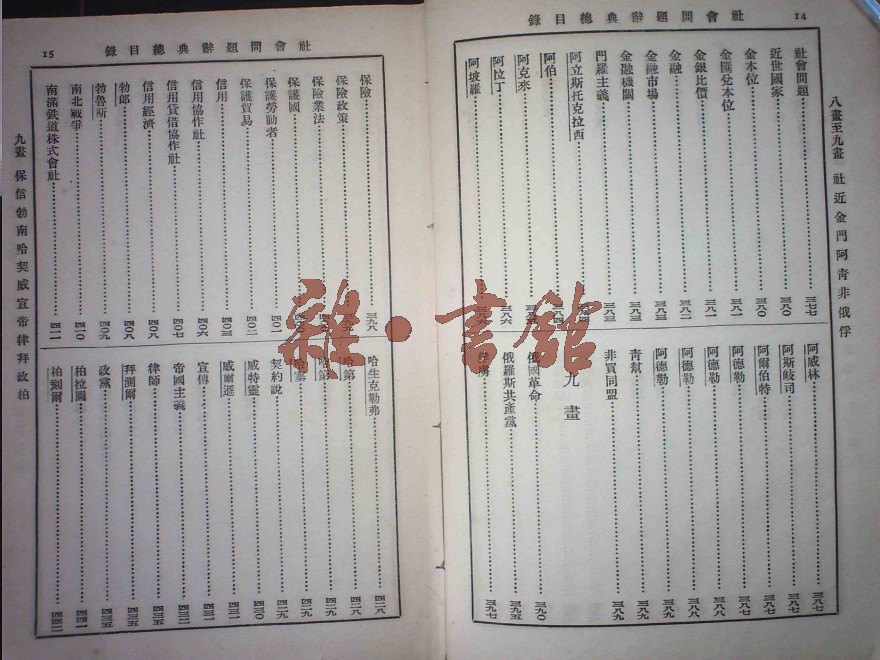 社會問題辭典總目錄
14
八畫至九畫 社近金門阿青非俄俘
社會問題 三七七
近世國家 三八〇
金本位 三八〇
金匯兌本位 三八一
金銀比價 三八一
金融 三八二
金融市場 三八三
金融機關 三八三
門羅主義 三八三
阿立斯托克拉西
阿伯
阿克來
阿拉丁 三八六
阿坡羅
阿威林 三八七
阿斯岐司 三八七
阿爾伯特 三八七
阿德勒 三八七
阿德勒 三八八
阿德勒 三八八
青幫 三八九
非買同盟 三八九
九畫
俄國革命 三九〇
俄羅斯共產黨 三九五
俘虜 三九七
社會問題辭典總目錄
15
保險 三九八
保險政策
保險業法
保護國
保護勞動者 四〇一
保護貿易 四〇二
信用 四〇三
信用協作社 四〇六
信用貸借協作社 四〇七
信用經濟 四〇八
勃郎 四〇八
勃魯斯 四〇九
南北戰爭 四一〇
南滿鉄道株式會社 四一一
哈生克勒弗 四二八
哈第 四二八
哈第 四二九
哈塞 四二九
契約說 四二九
威特靈 四三〇
威爾遜 四三一
宣傳 四三一
帝國主義 四三二
律師 四三五
拜測爾 四三五
政黨 四三五
柏拉圖 四四一
柏剌爾 四四二
九畫 保信勃南哈契威宣帝律拜政柏
雜·書館